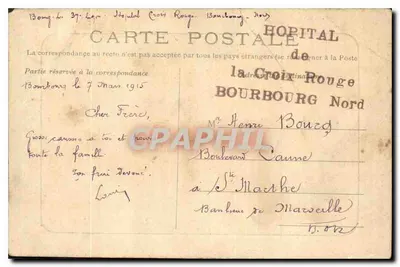 Bourg le 37e Hopital Croix Rouge Bourbourg Nord
HOPITAL
CARTE POSTALE
de
La correspondance au recto n'est pas acceptée par tous les pays étrangers
à la Poste
la Croix Rouge
Partie réservée à la correspondance
BOURBOURG Nord
Bourbourg le 7 Mars 1915
Cher Frère,
Mr Henri Bourg
Grosses caresses à toi et pour
toute la famille
Boulevard
Ton frère dévoué
à Ste Marthe
Louis
Banlieue de Marseille
B. d. R.
CPA-PHILA